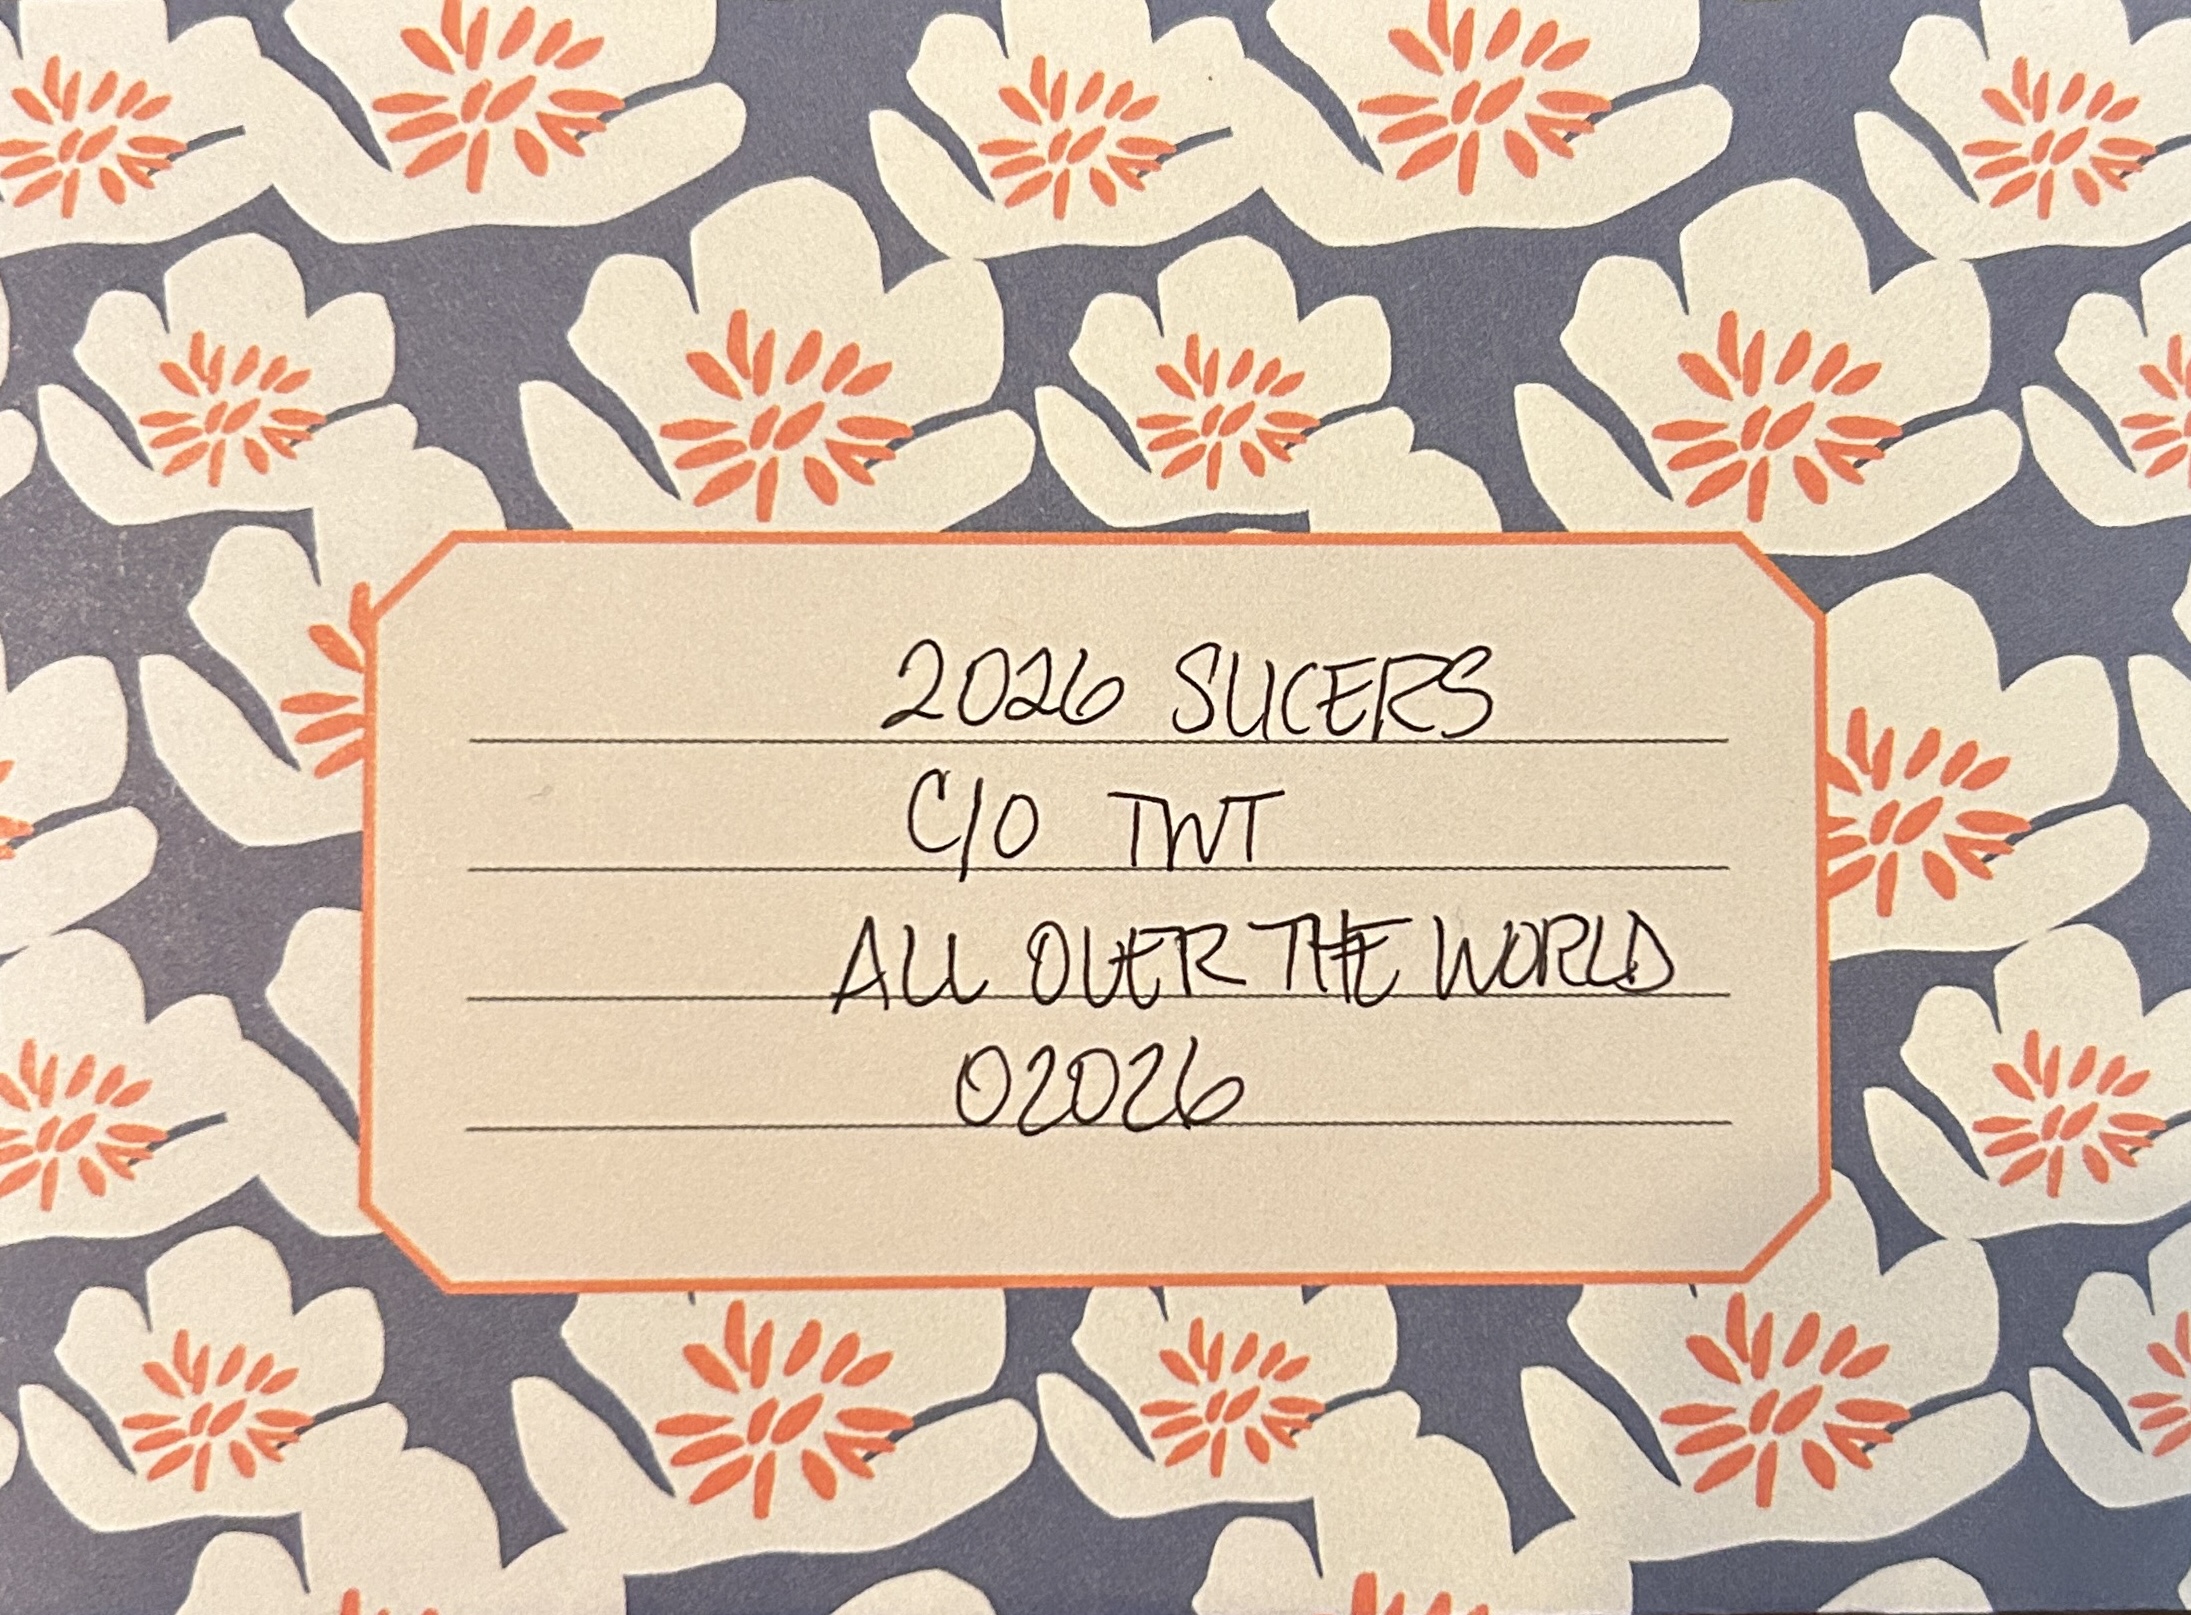 2026 SLICERS
C/O TWT
ALL OVER THE WORLD
02026